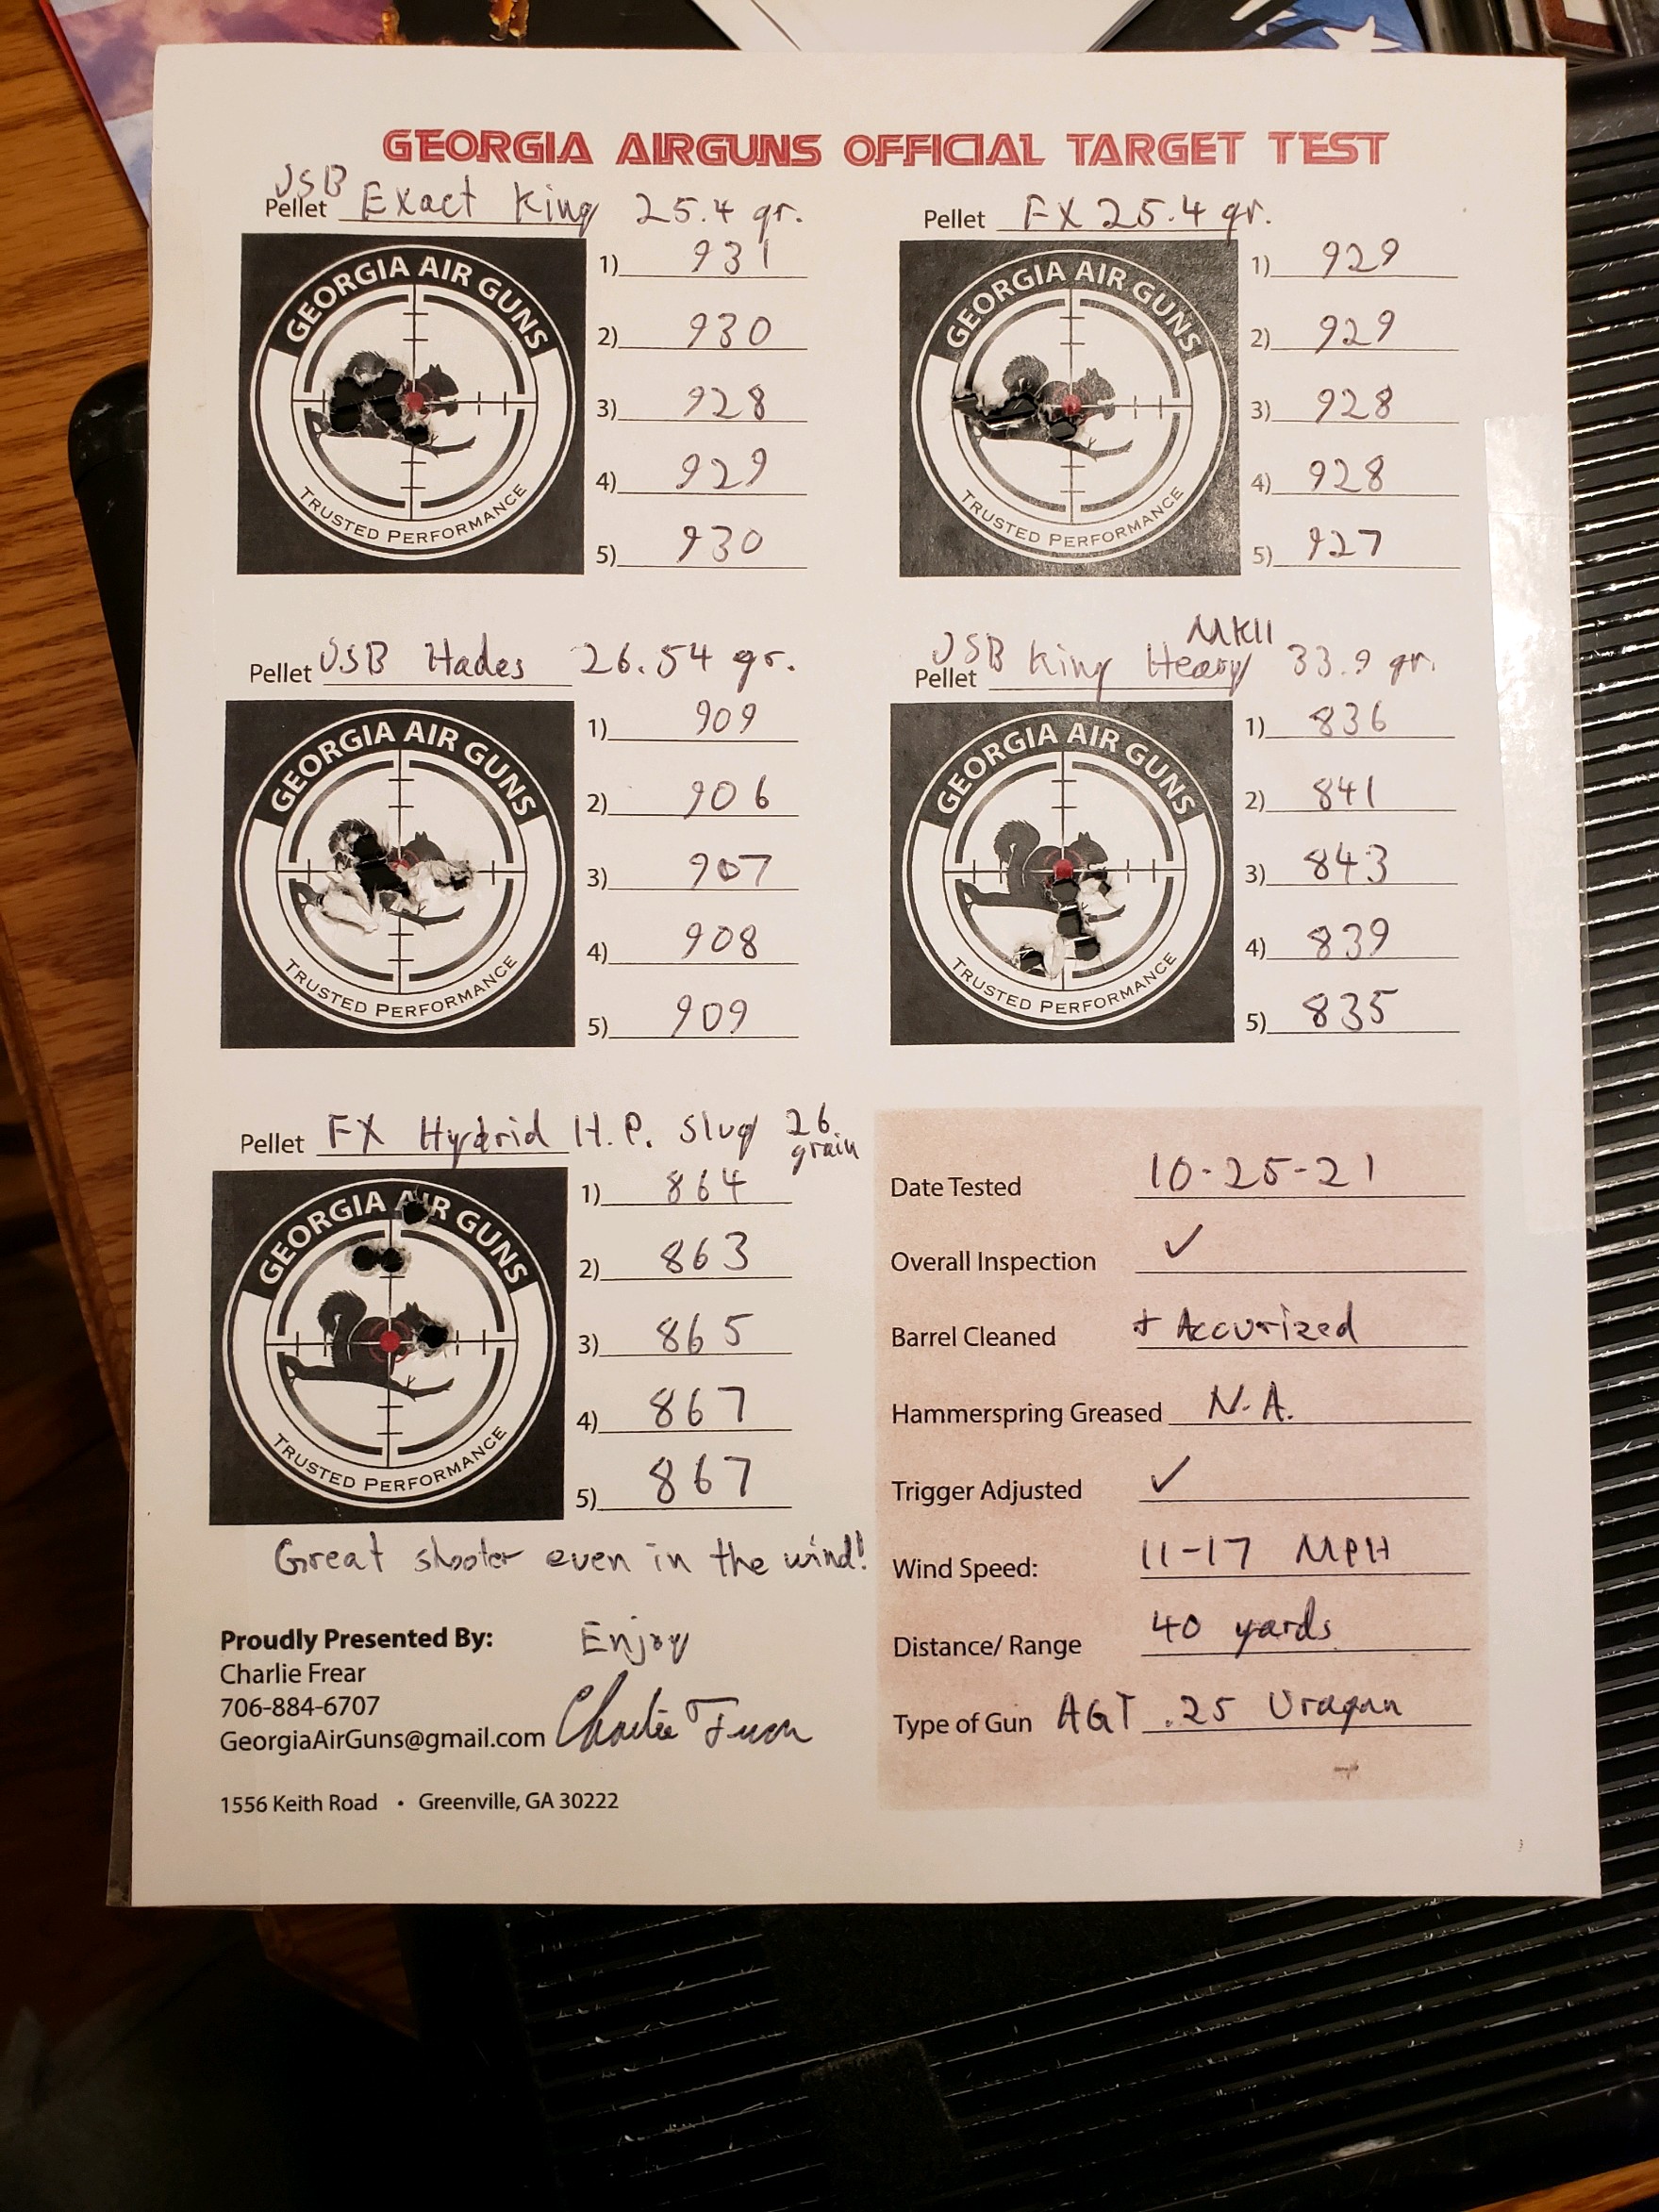 GEORGIA AIRGUNS OFFICIAL TARGET TEST
JSB
Pellet Exact King 25.4 gr.
GEORGIA AIR GUNS
TRUSTED PERFORMANCE
1) 931
2) 930
3) 928
4) 929
5) 930
Pellet FX 25.4 gr.
GEORGIA AIR GUNS
TRUSTED PERFORMANCE
1) 929
2) 929
3) 928
4) 928
5) 927
Pellet JSB Hades 26.54 gr.
GEORGIA AIR GUNS
TRUSTED PERFORMANCE
1) 909
2) 906
3) 907
4) 908
5) 909
MKII
Pellet JSB King Heavy 33.9 gr.
GEORGIA AIR GUNS
TRUSTED PERFORMANCE
1) 836
2) 841
3) 843
4) 839
5) 835
Pellet FX Hydrid H.P. Slug 26
grain
GEORGIA AIR GUNS
TRUSTED PERFORMANCE
1) 864
2) 863
3) 865
4) 867
5) 867
Great shooter even in the wind!
Proudly Presented By:
Charlie Frear
706-884-6707
GeorgiaAirGuns@gmail.com
Enjoy
Charlie Frear
1556 Keith Road • Greenville, GA 30222
Date Tested 10-25-21
Overall Inspection ✓
Barrel Cleaned + Accurized
Hammerspring Greased N.A.
Trigger Adjusted ✓
Wind Speed: 11-17 MPH
Distance/ Range 40 yards
Type of Gun AGT .25 Uragan